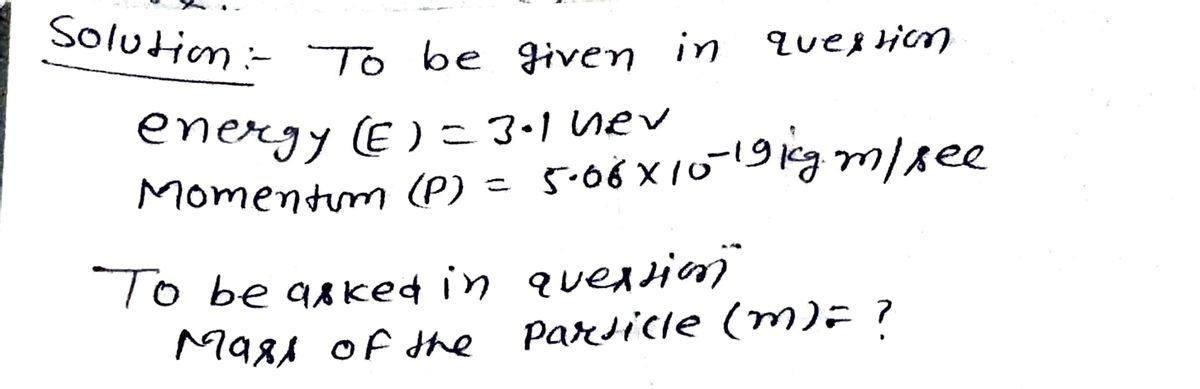 Solution :- To be given in question
energy (E) = 3.1 MeV
Momentum (P) = 5.06 × 10⁻¹⁹ kg m/sec
To be asked in question
Mass of the particle (m) = ?